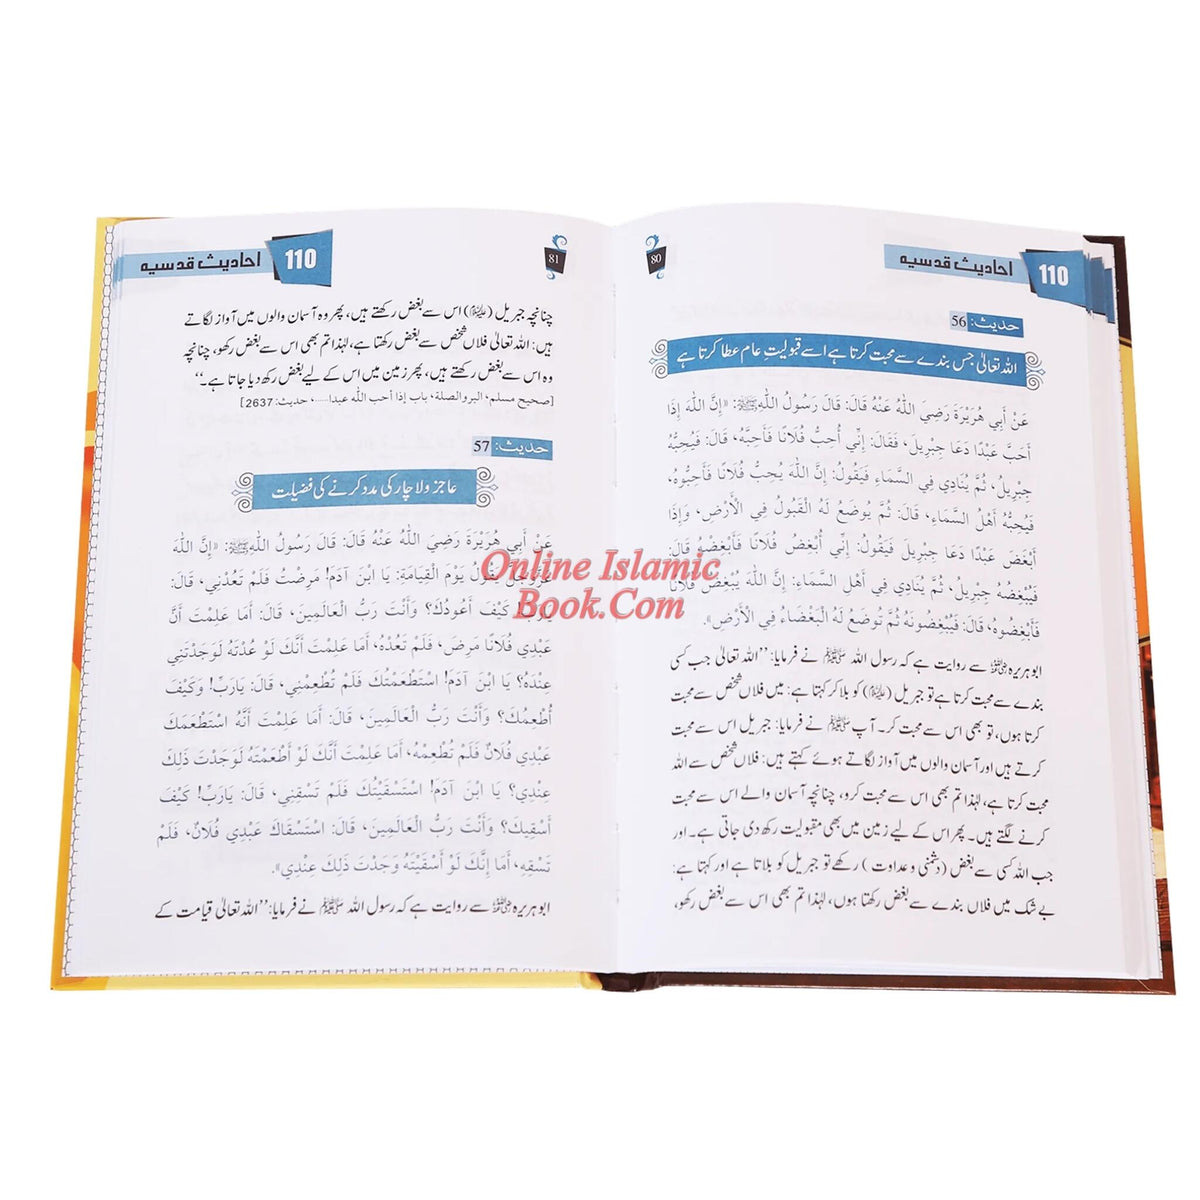 110 احادیث قدسیہ
80
حدیث: 56
اللہ تعالیٰ جس بندے سے محبت کرتا ہے اسے قبولیتِ عام عطا کرتا ہے
عَنْ أَبِي هُرَيْرَةَ رَضِيَ اللهُ عَنْهُ قَالَ: قَالَ رَسُولُ اللهِ ﷺ: «إِنَّ اللهَ إِذَا
أَحَبَّ عَبْدًا دَعَا جِبْرِيلَ، فَقَالَ: إِنِّي أُحِبُّ فُلَانًا فَأَحِبَّهُ، قَالَ: فَيُحِبُّهُ
جِبْرِيلُ، ثُمَّ يُنَادِي فِي السَّمَاءِ فَيَقُولُ: إِنَّ اللهَ يُحِبُّ فُلَانًا فَأَحِبُّوهُ،
فَيُحِبُّهُ أَهْلُ السَّمَاءِ، قَالَ: ثُمَّ يُوضَعُ لَهُ الْقَبُولُ فِي الْأَرْضِ، وَإِذَا
أَبْغَضَ عَبْدًا دَعَا جِبْرِيلَ فَيَقُولُ: إِنِّي أُبْغِضُ فُلَانًا فَأَبْغِضْهُ قَالَ:
فَيُبْغِضُهُ جِبْرِيلُ، ثُمَّ يُنَادِي فِي أَهْلِ السَّمَاءِ: إِنَّ اللهَ يُبْغِضُ فُلَانًا
فَأَبْغِضُوهُ، قَالَ: فَيُبْغِضُونَهُ ثُمَّ تُوضَعُ لَهُ الْبَغْضَاءُ فِي الْأَرْضِ».
ابو ہریرہ ؓ سے روایت ہے کہ رسول اللہ ﷺ نے فرمایا: ’’اللہ تعالیٰ جب کسی
بندے سے محبت کرتا ہے تو جبریل (علیہ السلام) کو بلا کر کہتا ہے: میں فلاں شخص سے محبت
کرتا ہوں، تو بھی اس سے محبت کر۔ آپ ﷺ نے فرمایا: جبریل اس سے محبت
کرتے ہیں اور آسمان والوں میں آواز لگاتے ہوئے کہتے ہیں: فلاں شخص سے اللہ
محبت کرتا ہے، لہٰذا تم بھی اس سے محبت کرو، چنانچہ آسمان والے اس سے محبت
کرنے لگتے ہیں۔ پھر اس کے لیے زمین میں بھی مقبولیت رکھ دی جاتی ہے۔ اور
جب اللہ کسی سے بغض (دشمنی و عداوت) رکھے تو جبریل کو بلاتا ہے اور کہتا ہے:
بے شک میں فلاں بندے سے بغض رکھتا ہوں، لہٰذا تم بھی اس سے بغض رکھو،
110 احادیث قدسیہ
81
چنانچہ جبریل (علیہ السلام) اس سے بغض رکھتے ہیں، پھر وہ آسمان والوں میں آواز لگاتے
ہیں: اللہ تعالیٰ فلاں شخص سے بغض رکھتا ہے، لہٰذا تم بھی اس سے بغض رکھو، چنانچہ
وہ اس سے بغض رکھتے ہیں، پھر زمین میں اس کے لیے بغض رکھ دیا جاتا ہے۔‘‘
[صحیح مسلم، البر والصلة، باب إذا أحب الله عبدا......، حدیث: 2637]
حدیث: 57
عاجز و لاچار کی مدد کرنے کی فضیلت
عَنْ أَبِي هُرَيْرَةَ رَضِيَ اللهُ عَنْهُ قَالَ: قَالَ رَسُولُ اللهِ ﷺ: «إِنَّ اللهَ
يَقُولُ يَوْمَ الْقِيَامَةِ: يَا ابْنَ آدَمَ! مَرِضْتُ فَلَمْ تَعُدْنِي، قَالَ:
يَارَبِّ! كَيْفَ أَعُودُكَ؟ وَأَنْتَ رَبُّ الْعَالَمِينَ، قَالَ: أَمَا عَلِمْتَ أَنَّ
عَبْدِي فُلَانًا مَرِضَ، فَلَمْ تَعُدْهُ، أَمَا عَلِمْتَ أَنَّكَ لَوْ عُدْتَهُ لَوَجَدْتَنِي
عِنْدَهُ؟ يَا ابْنَ آدَمَ! اسْتَطْعَمْتُكَ فَلَمْ تُطْعِمْنِي، قَالَ: يَارَبِّ! وَكَيْفَ
أُطْعِمُكَ؟ وَأَنْتَ رَبُّ الْعَالَمِينَ، قَالَ: أَمَا عَلِمْتَ أَنَّهُ اسْتَطْعَمَكَ
عَبْدِي فُلَانٌ فَلَمْ تُطْعِمْهُ، أَمَا عَلِمْتَ أَنَّكَ لَوْ أَطْعَمْتَهُ لَوَجَدْتَ ذَلِكَ
عِنْدِي؟ يَا ابْنَ آدَمَ! اسْتَسْقَيْتُكَ فَلَمْ تَسْقِنِي، قَالَ: يَارَبِّ! كَيْفَ
أَسْقِيكَ؟ وَأَنْتَ رَبُّ الْعَالَمِينَ، قَالَ: اسْتَسْقَاكَ عَبْدِي فُلَانٌ، فَلَمْ
تَسْقِهِ، أَمَا إِنَّكَ لَوْ أَسْقَيْتَهُ وَجَدْتَ ذَلِكَ عِنْدِي».
ابو ہریرہ ؓ سے روایت ہے کہ رسول اللہ ﷺ نے فرمایا: ’’اللہ تعالیٰ قیامت کے
Online Islamic
Book.Com